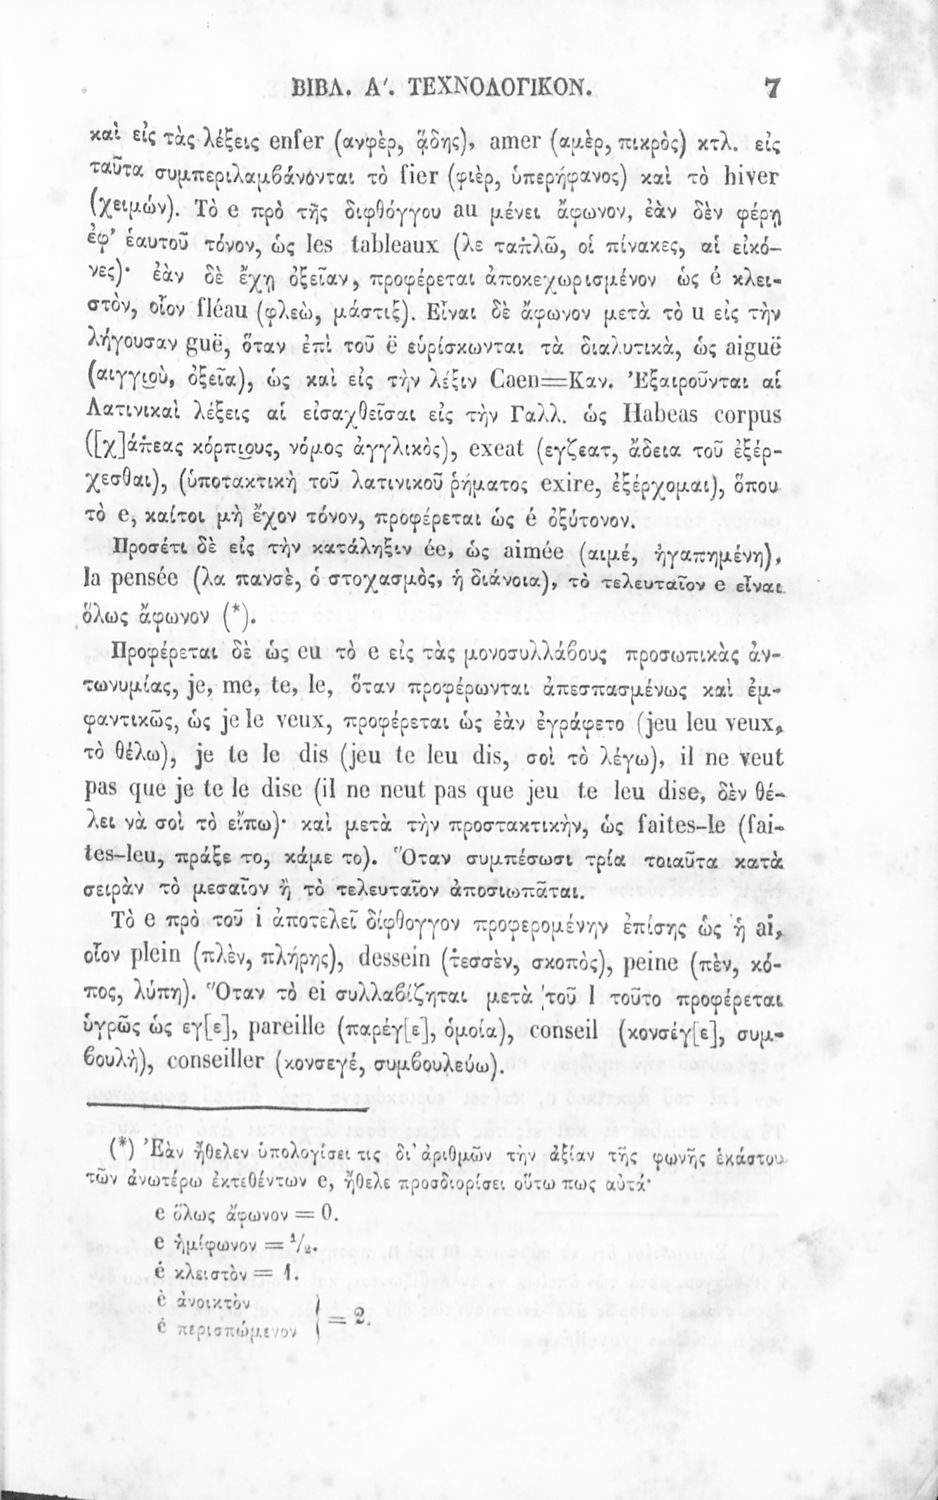 ΒΙΒΛ. Α΄. ΤΕΧΝΟΛΟΓΙΚΟΝ. 7
καὶ εἰς τὰς λέξεις enfer (ανφὲρ, ᾅδης), amer (αμὲρ, πικρὸς) κτλ. εἰς
ταῦτα συμπεριλαμβάνονται τὸ fier (φιὲρ, ὑπερήφανος) καὶ τὸ hiver
(χειμών). Τὸ e πρὸ τῆς διφθόγγου au μένει ἄφωνον, ἐὰν δὲν φέρῃ
ἐφ' ἑαυτοῦ τόνον, ὡς les tableaux (λε ταπλῶ, οἱ πίνακες, αἱ εἰκό–
νες)· ἐὰν δὲ ἔχῃ ὀξεῖαν, προφέρεται ἀποκεχωρισμένον ὡς é κλει-
στὸν, οἷον fléau (φλεὼ, μάστιξ). Εἶναι δὲ ἄφωνον μετὰ τὸ u εἰς τὴν
λήγουσαν guë, ὅταν ἐπὶ τοῦ ë εὑρίσκωνται τὰ διαλυτικὰ, ὡς aiguë
(αιγγιοὺ, ὀξεῖα), ὡς καὶ εἰς τὴν λέξιν Caen=Καν. Ἐξαιροῦνται αἱ
Λατινικαὶ λέξεις αἱ εἰσαχθεῖσαι εἰς τὴν Γαλλ. ὡς Habeas corpus
([χ]άπεας κόρπιους, νόμος ἀγγλικὸς), exeat (εγζεατ, ἄδεια τοῦ ἐξέρ-
χεσθαι), (ὑποτακτικὴ τοῦ λατινικοῦ ῥήματος exire, ἐξέρχομαι), ὅπου
τὸ e, καίτοι μὴ ἔχον τόνον, προφέρεται ὡς é ὀξύτονον.
Προσέτι δὲ εἰς τὴν κατάληξιν ée, ὡς aimée (αιμέ, ἠγαπημένη),
la pensée (λα πανσὲ, ὁ στοχασμὸς, ἡ διάνοια), τὸ τελευταῖον e εἶναι
ὅλως ἄφωνον (*).
Προφέρεται δὲ ὡς eu τὸ e εἰς τὰς μονοσυλλάβους προσωπικὰς ἀν-
τωνυμίας, je, me, te, le, ὅταν προφέρωνται ἀπεσπασμένως καὶ ἐμ-
φαντικῶς, ὡς je le veux, προφέρεται ὡς ἐὰν ἐγράφετο (jeu leu veux,
τὸ θέλω), je te le dis (jeu te leu dis, σοὶ τὸ λέγω), il ne veut
pas que je te le dise (il ne neut pas que jeu te leu dise, δὲν θέ-
λει νὰ σοὶ τὸ εἴπω)· καὶ μετὰ τὴν προστακτικὴν, ὡς faites–le (fai-
tes–leu, πράξε το, κάμε το). Ὅταν συμπέσωσι τρία τοιαῦτα κατὰ
σειρὰν τὸ μεσαῖον ἢ τὸ τελευταῖον ἀποσιωπᾶται.
Τὸ e πρὸ τοῦ i ἀποτελεῖ δίφθογγον προφερομένην ἐπίσης ὡς ἡ ai,
οἷον plein (πλὲν, πλήρης), dessein (τεσσὲν, σκοπὸς), peine (πὲν, κό-
πος, λύπη). Ὅταν τὸ ei συλλαβίζηται μετὰ τοῦ l τοῦτο προφέρεται
ὑγρῶς ὡς εγ[ε], pareille (παρέγ[ε], ὁμοία), conseil (κονσέγ[ε], συμ-
βουλὴ), conseiller (κονσεγέ, συμβουλεύω).
(*) Ἐὰν ἤθελεν ὑπολογίσει τις δι' ἀριθμῶν τὴν ἀξίαν τῆς φωνῆς ἑκάστου
τῶν ἀνωτέρω ἐκτεθέντων e, ἤθελε προσδιορίσει οὕτω πως αὐτά·
e ὅλως ἄφωνον = 0.
e ἡμίφωνον = 1/2.
é κλειστὸν = 1.
è ἀνοικτὸν
ê περισπώμενον } = 2.